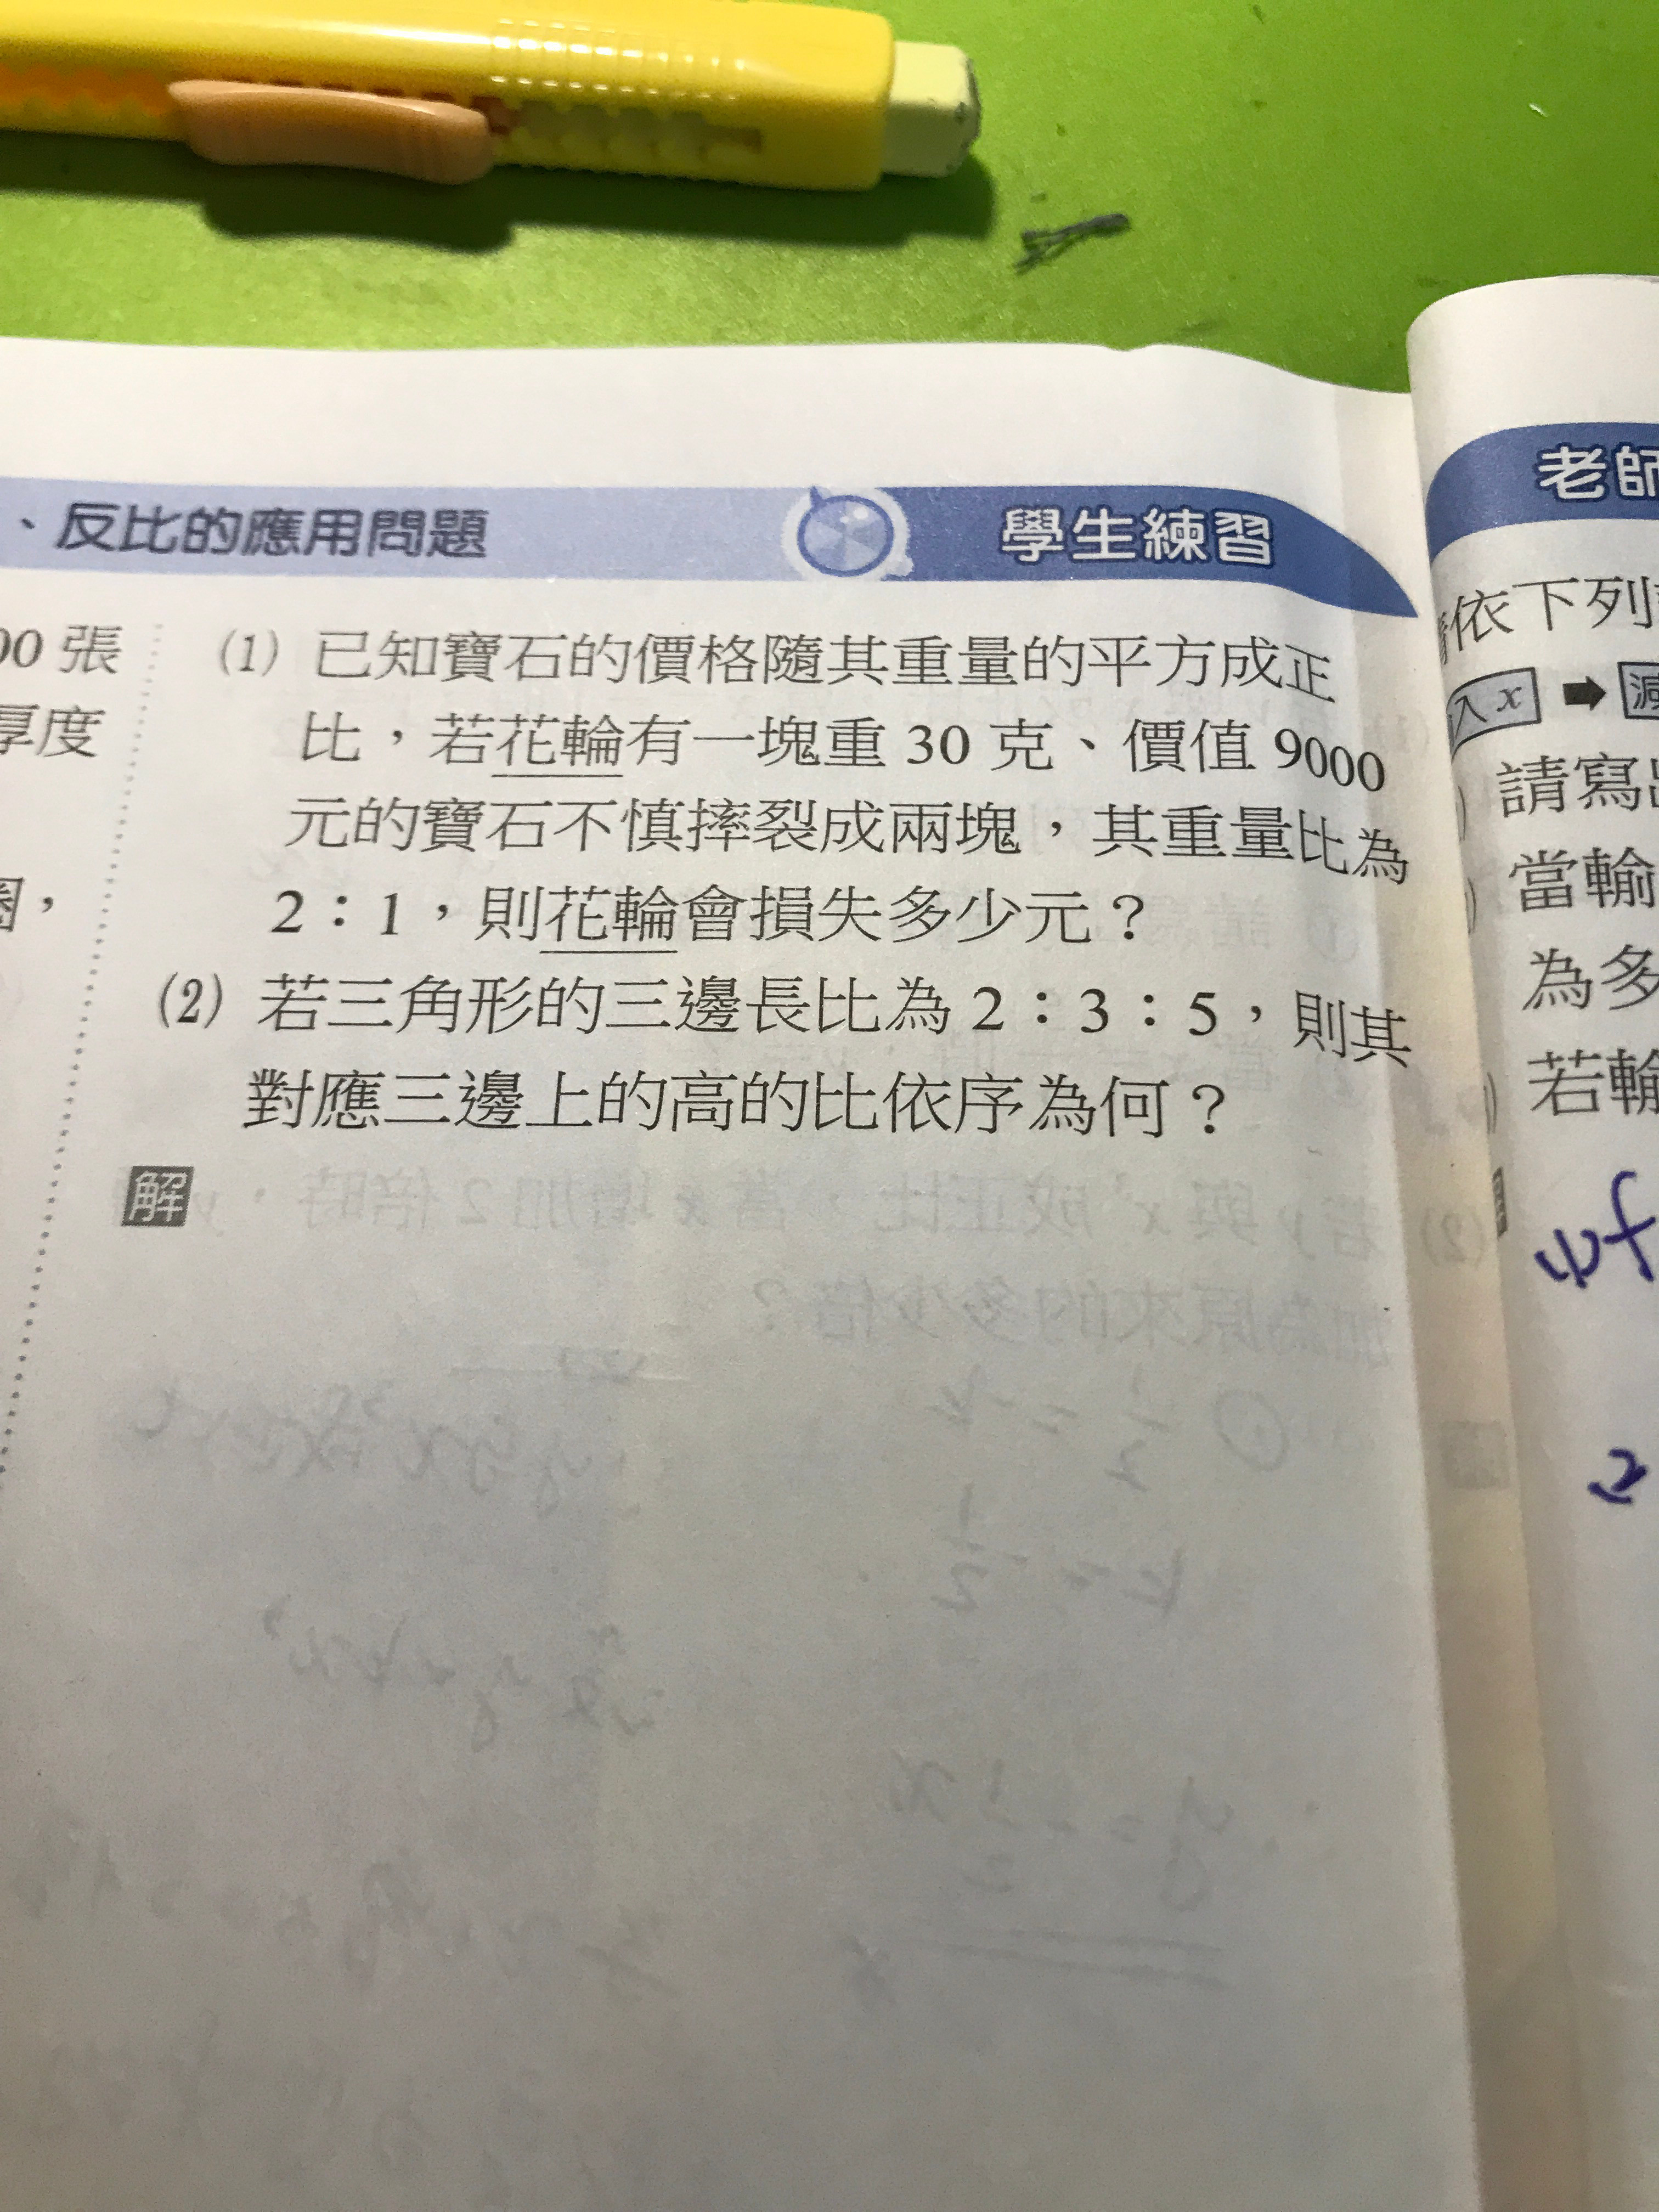 、反比的應用問題
學生練習
00 張
厚度
圈，
(1) 已知寶石的價格隨其重量的平方成正
比，若花輪有一塊重 30 克、價值 9000
元的寶石不慎摔裂成兩塊，其重量比為
2：1，則花輪會損失多少元？
(2) 若三角形的三邊長比為 2：3：5，則其
對應三邊上的高的比依序為何？
解
老師
依下列
入 x ➡ 減
請寫出
當輸
為多
若輸
2